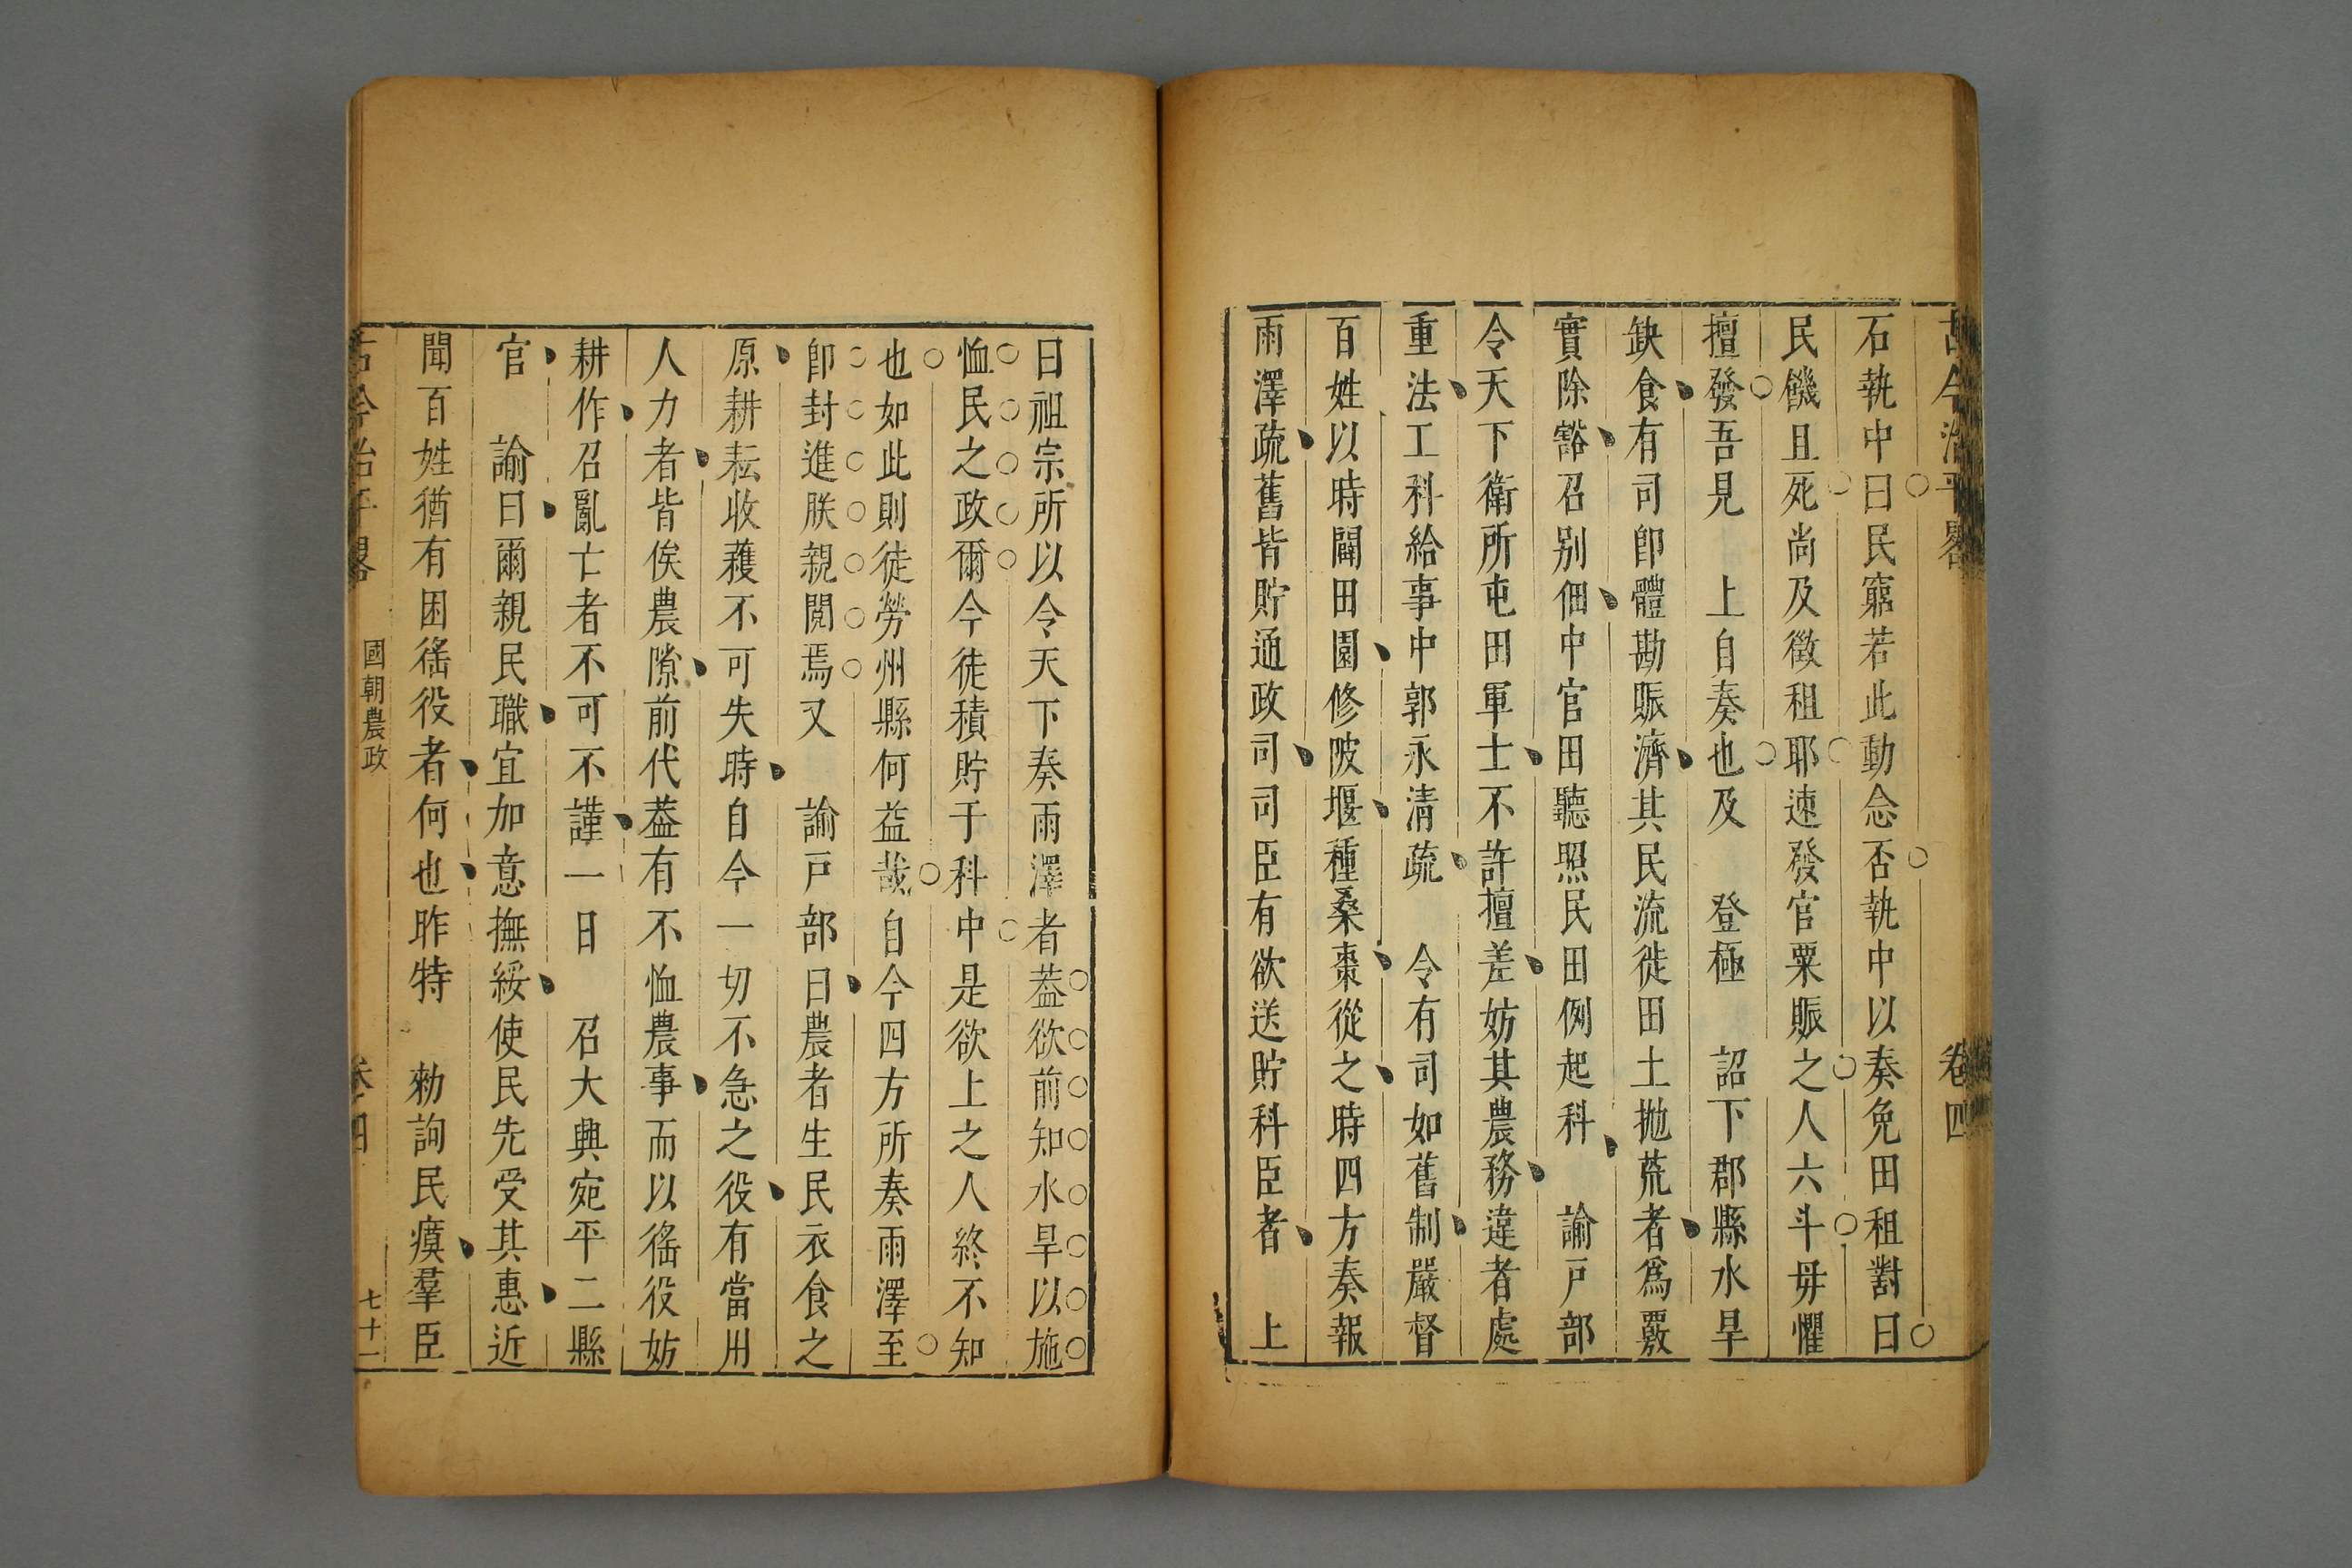 古今治平畧 卷四
石執中曰民窮若此動念否執中以奏免田租對曰
民饑且死尚及徵租耶速發官粟賑之人六斗毋懼
擅發吾見 上自奏也及 登極 詔下郡縣水旱
缺食有司卽體勘賑濟其民流徙田土抛荒者爲覈
實除豁召别佃中官田聽照民田例起科 諭戸部
令天下衛所屯田軍士不許擅差妨其農務違者處
重法工科給事中郭永清疏 令有司如舊制嚴督
百姓以時闢田園修陂堰種桑棗從之時四方奏報
雨澤疏舊皆貯通政司司臣有欲送貯科臣者 上
曰祖宗所以令天下奏雨澤者葢欲前知水旱以施
恤民之政爾今徒積貯于科中是欲上之人終不知
也如此則徒勞州縣何益哉自今四方所奏雨澤至
卽封進朕親閲焉又 諭戸部曰農者生民衣食之
原耕耘收穫不可失時自今一切不急之役有當用
人力者皆俟農隙前代葢有不恤農事而以徭役妨
耕作召亂亡者不可不謹一日 召大興宛平二縣
官 諭曰爾親民職宜加意撫綏使民先受其惠近
聞百姓猶有困徭役者何也昨特 勑詢民瘼羣臣
古今治平畧 國朝農政 卷四 七十二